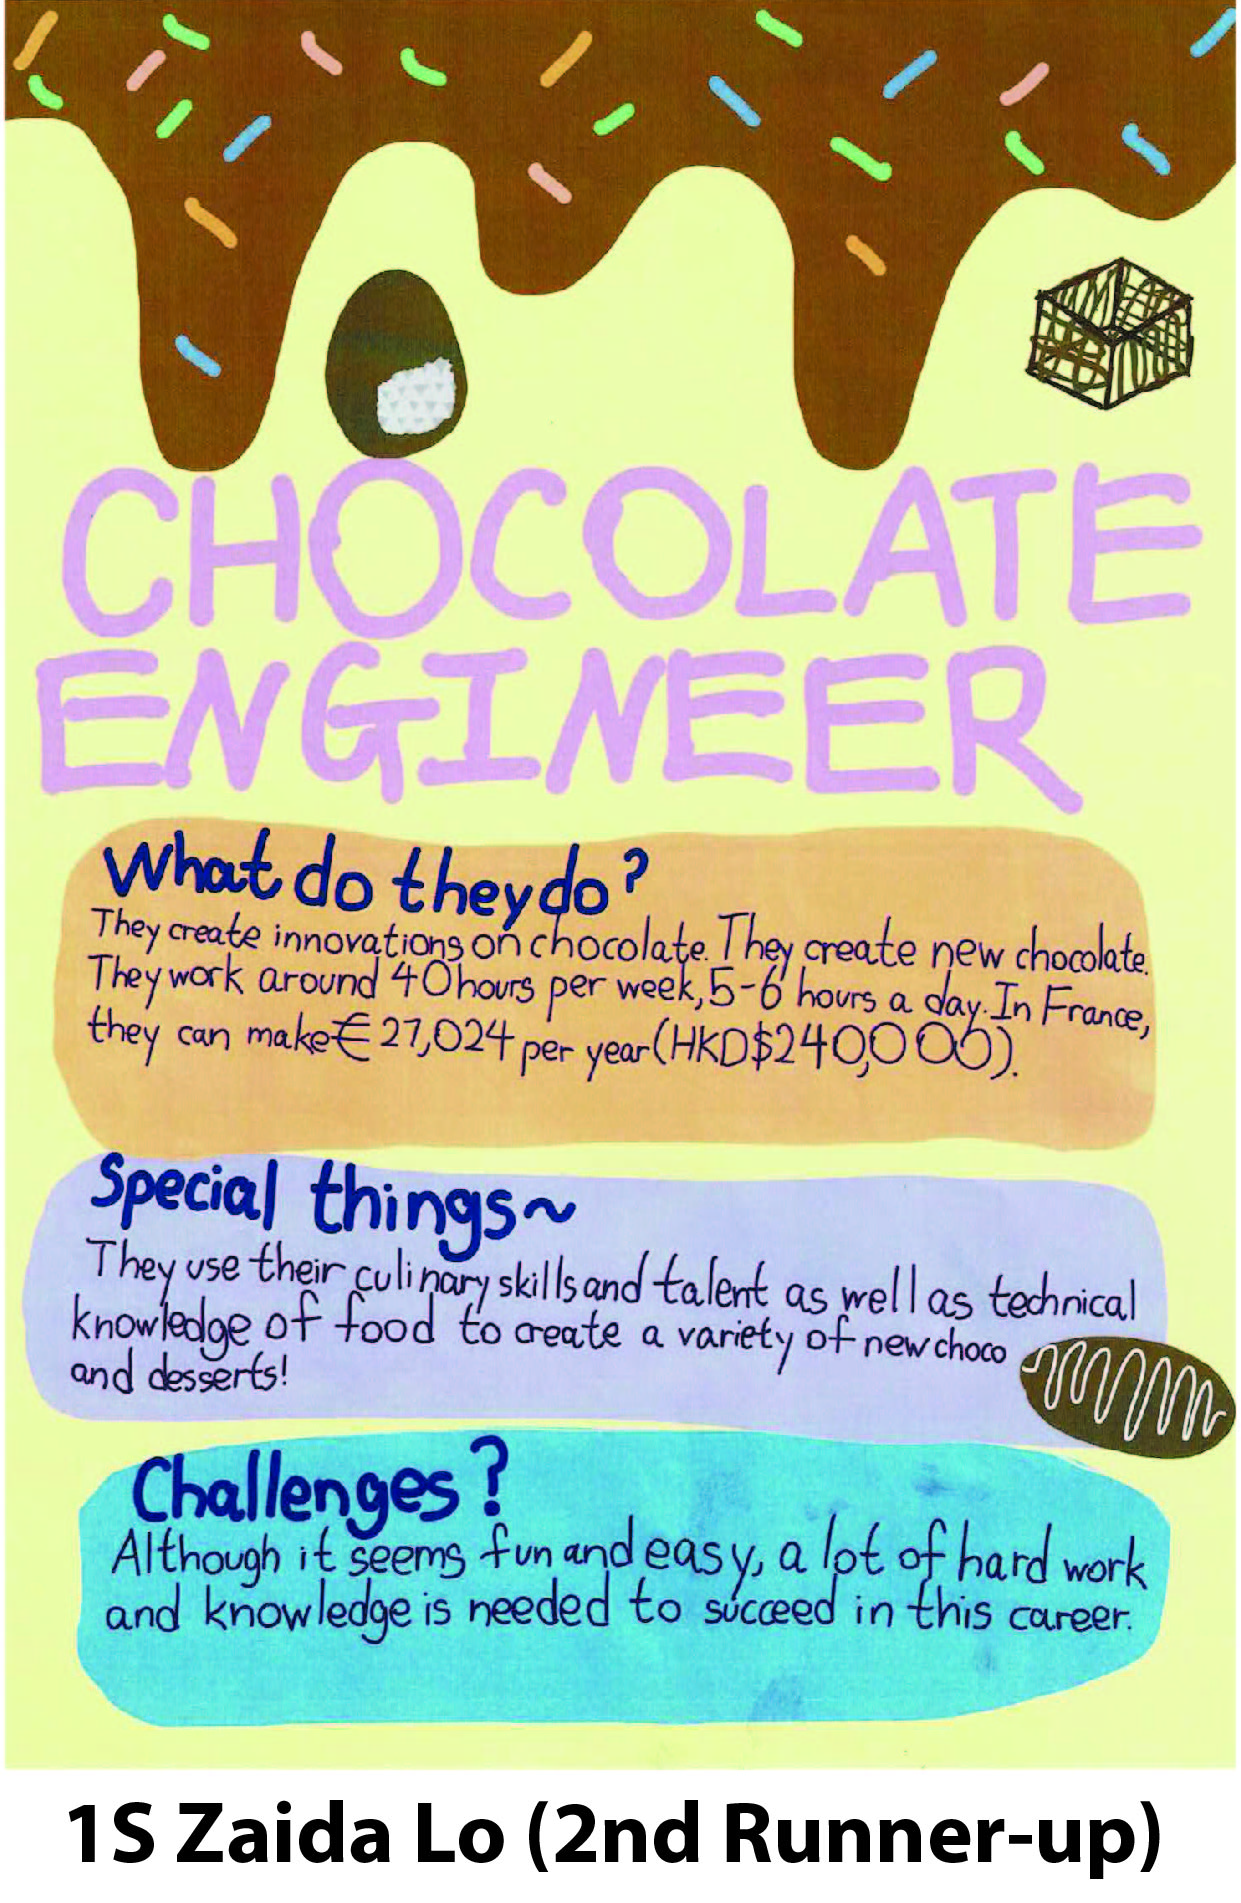 CHOCOLATE
ENGINEER
What do they do?
They create innovations on chocolate. They create new chocolate.
They work around 40 hours per week, 5-6 hours a day. In France,
they can make € 27,024 per year (HKD$240,000).
Special things~
They use their culinary skills and talent as well as technical
knowledge of food to create a variety of new choco
and desserts!
Challenges?
Although it seems fun and easy, a lot of hard work
and knowledge is needed to succeed in this career.
1S Zaida Lo (2nd Runner-up)